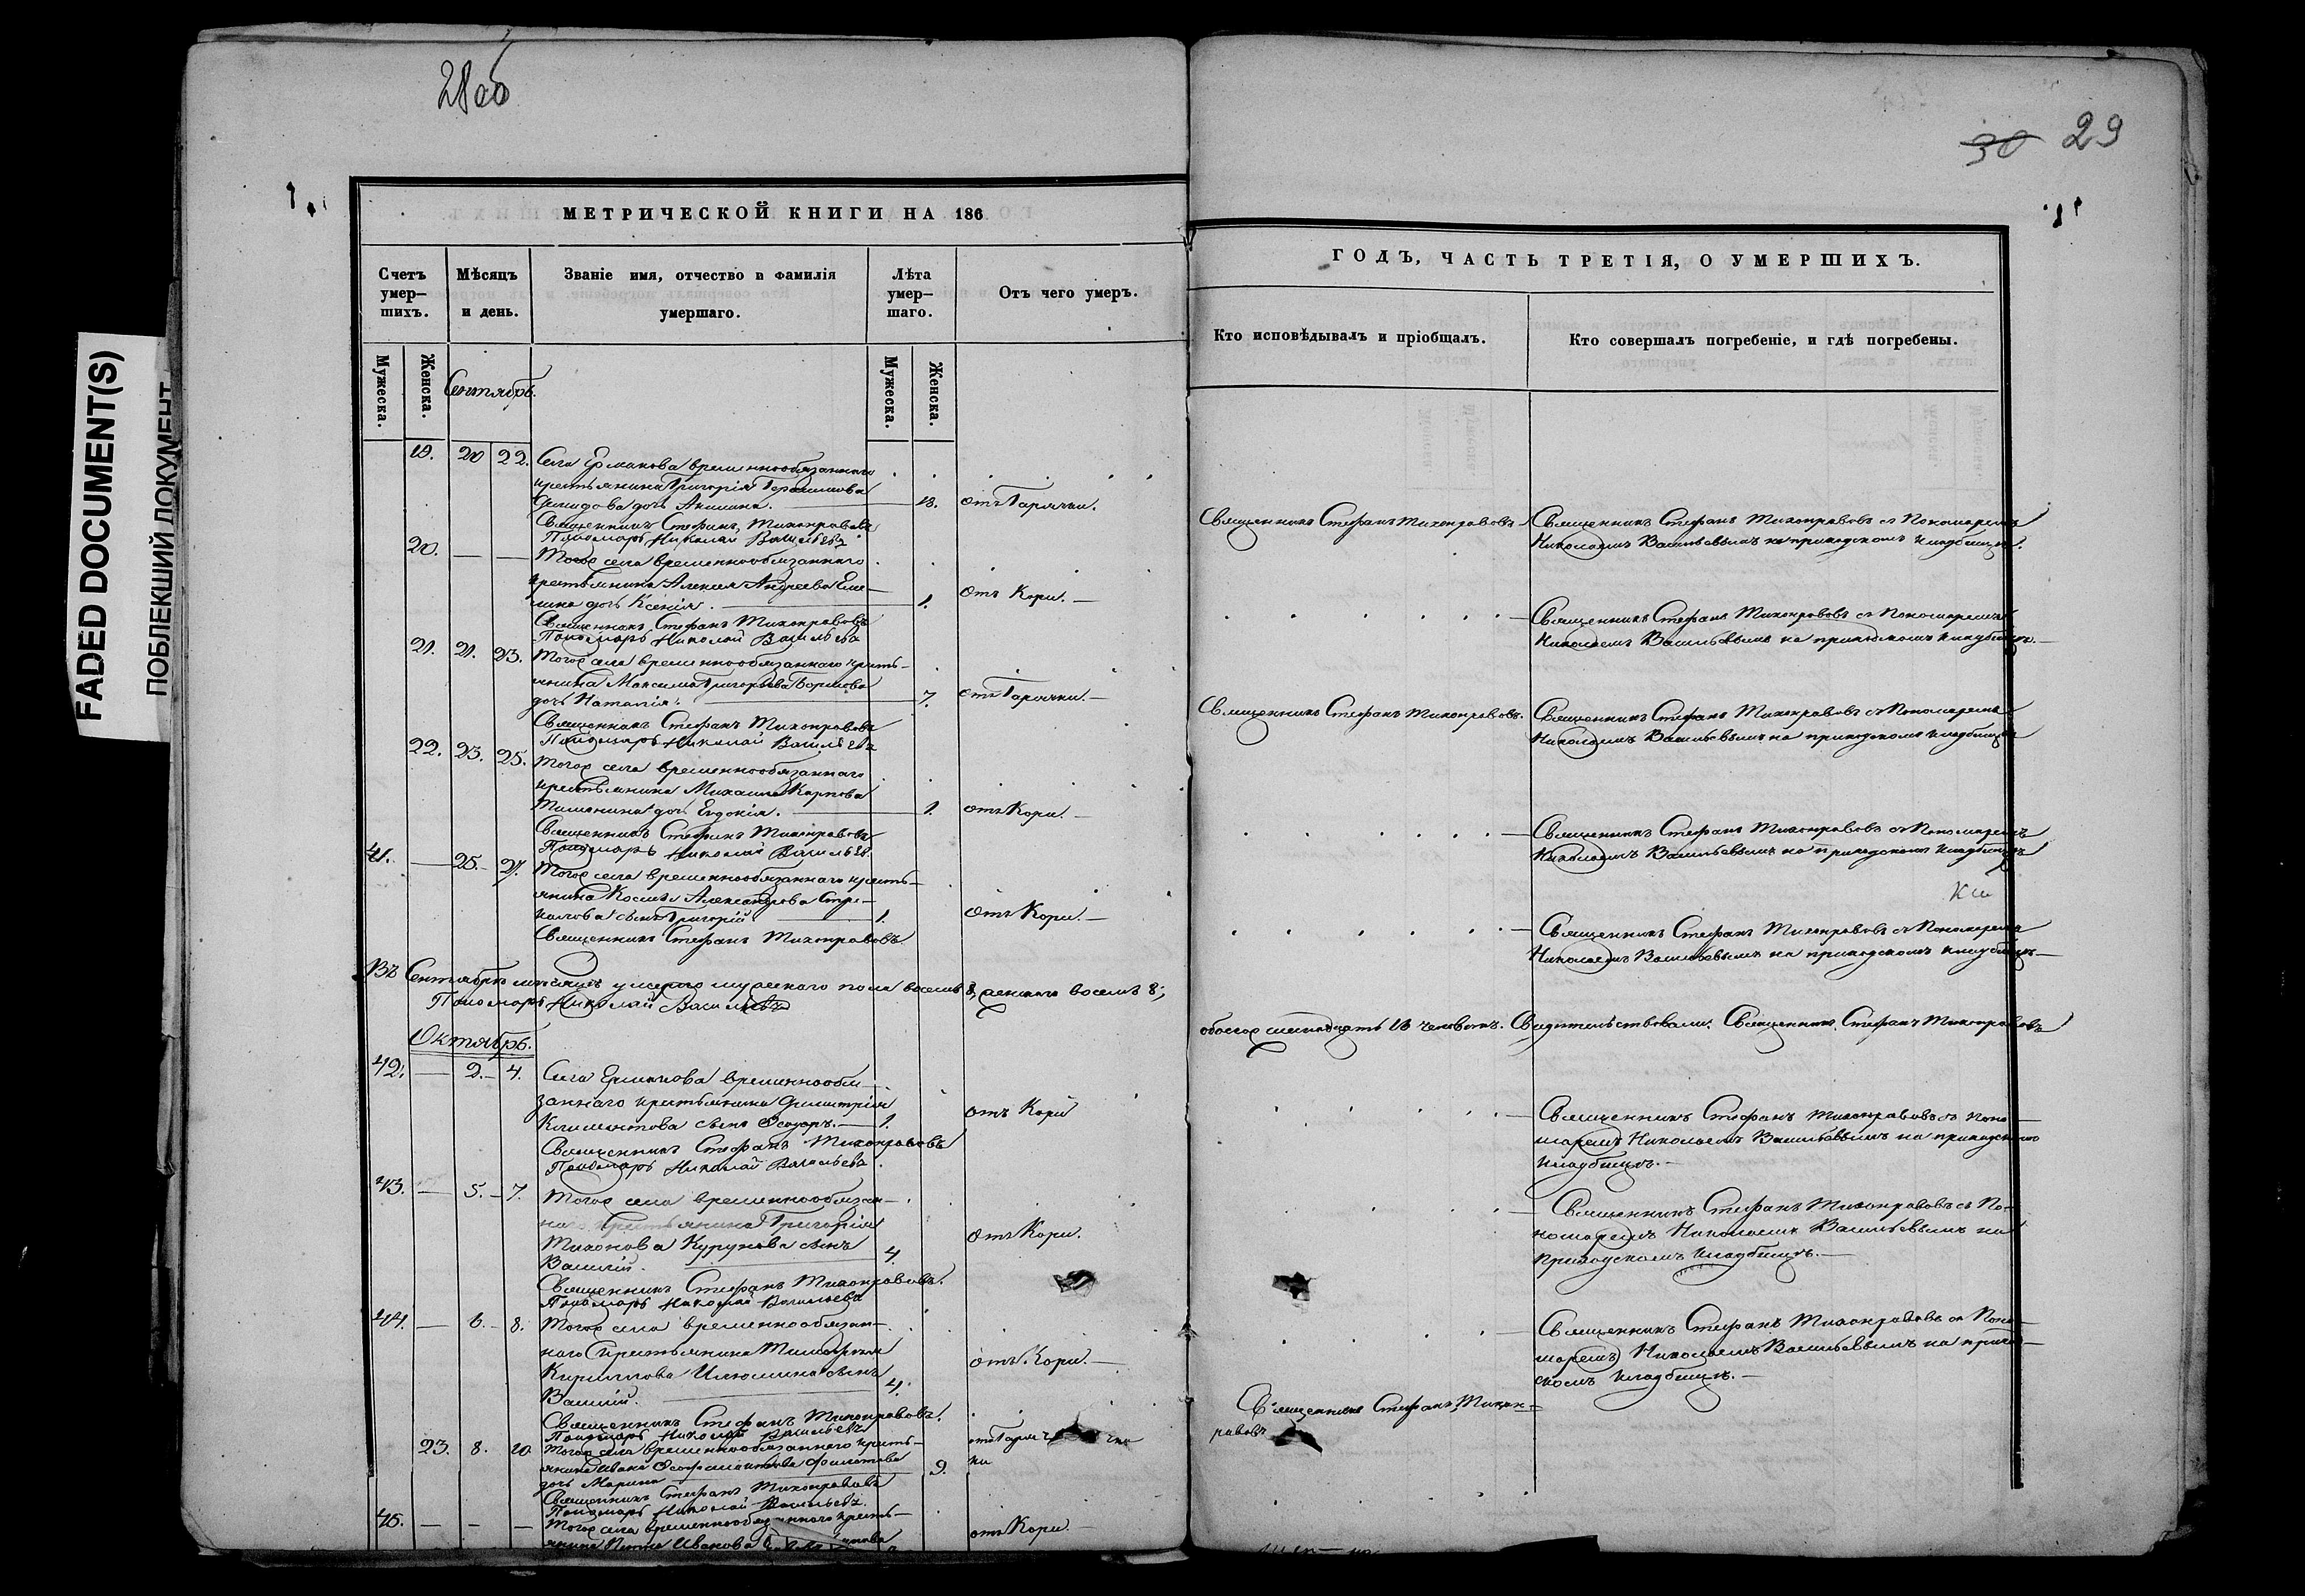 28 об
30 29
FADED DOCUMENT(S)
ПОБЛЕКШИЙ ДОКУМЕНТ
МЕТРИЧЕСКОЙ КНИГИ НА 186
ГОДЪ, ЧАСТЬ ТРЕТІЯ, О УМЕРШИХЪ.
Счетъ умер—шихъ.
Мѣсяцъ и день.
Званіе имя, отчество и фамилія умершаго.
Лѣта умер—шаго.
Отъ чего умеръ.
Кто исповѣдывалъ и пріобщалъ.
Кто совершалъ погребеніе, и гдѣ погребены.
Мужеска.
Женска.
Сентябрь.
Мужеска.
Женска.
19. 20 22. Села Ермакова временнообязаннаго
крестьянина Григорія Герасимова
дочь Акилина. — 18. отъ Горячки.
Священникъ Стефанъ Тихонравовъ
Пономарь Николай Васильевъ
Священникъ Стефанъ Тихонравовъ
Священникъ Стефанъ Тихонравовъ съ Пономаремъ
Николаемъ Васильевымъ на приходскомъ кладбищѣ.
20. — — Тогоже села временнообязаннаго
крестьянина Алексея Андреева
дочь Ксенія. — 1. отъ Кори. —
Священникъ Стефанъ Тихонравовъ
Пономарь Николай Васильевъ
Священникъ Стефанъ Тихонравовъ съ Пономаремъ
Николаемъ Васильевымъ на приходскомъ кладбищѣ. —
21. 21. 23. Тогоже села временнообязаннаго кресть—
янина Максима Григорьева
дочь Наталія. — 7. отъ Горячки. —
Священникъ Стефанъ Тихонравовъ
Пономарь Николай Васильевъ
Священникъ Стефанъ Тихонравовъ.
Священникъ Стефанъ Тихонравовъ съ Пономаремъ
Николаемъ Васильевымъ на приходскомъ кладбищѣ
22. 23. 25. Тогоже села временнообязаннаго
крестьянина Михаила Карпова
дочь Евдокія. — 1. отъ Кори. —
Священникъ Стефанъ Тихонравовъ
Пономарь Николай Васильевъ.
Священникъ Стефанъ Тихонравовъ съ Пономаремъ
Николаемъ Васильевымъ на приходскомъ кладбищѣ
41. — 25. — 27. Тогоже села временнообязаннаго кресть—
янина Космы Александрова Стре—
калова сынъ Григорій — 1. Отъ Кори. —
Священникъ Стефанъ Тихонравовъ.
Священникъ Стефанъ Тихонравовъ съ Пономаремъ
Николаемъ Васильевымъ на приходскомъ кладбищѣ —
Въ Сентябрѣ мѣсяцѣ умерло мужескаго пола восемь 8, женскаго восемь 8;
Пономарь Николай Васильевъ
обоего шестнадцать 16 человѣкъ. Свидетельствовали: Священникъ Стефанъ Тихонравовъ
Октябрь.
42. — 2. — 4. Села Ермакова временнообя—
заннаго крестьянина Димитрія
Климентова сынъ Ѳедоръ. — 1. отъ Кори
Священникъ Стефанъ Тихонравовъ
Пономарь Николай Васильевъ.
Священникъ Стефанъ Тихонравовъ съ Поно—
маремъ Николаемъ Васильевымъ на приходскомъ
кладбищѣ. —
43. — 5. — 7. Тогоже села временнообязан—
крестьянина Григорія
Тихонова сынъ
Василій. — 4. отъ Кори.
Священникъ Стефанъ Тихонравовъ.
Пономарь Николай Васильевъ
Священникъ Стефанъ Тихонравовъ съ По—
номаремъ Николаемъ Васильевымъ на
приходскомъ кладбищѣ. —
44. — 6. — 8. Тогоже села временнообязан—
наго крестьянина Тимофея
Кириллова Илюшина сынъ
Василій. — 4. отъ Кори. —
Священникъ Стефанъ Тихонравовъ.
Пономарь Николай Васильевъ
Священникъ Стефанъ Тихонравовъ съ Поно—
маремъ Николаемъ Васильевымъ на приход—
скомъ кладбищѣ. —
23. 8. 10 Тогоже села временнообязаннаго кресть—
янина Ивана Филатова
дочь Марина — 9.
Священникъ Стефанъ Тихонравовъ
Пономарь Николай Васильевъ.
Священникъ Стефанъ Тихон—
равовъ
45. — — — Тогоже села временнообязаннаго кресть—
янина Петра Иванова
отъ Кори. —